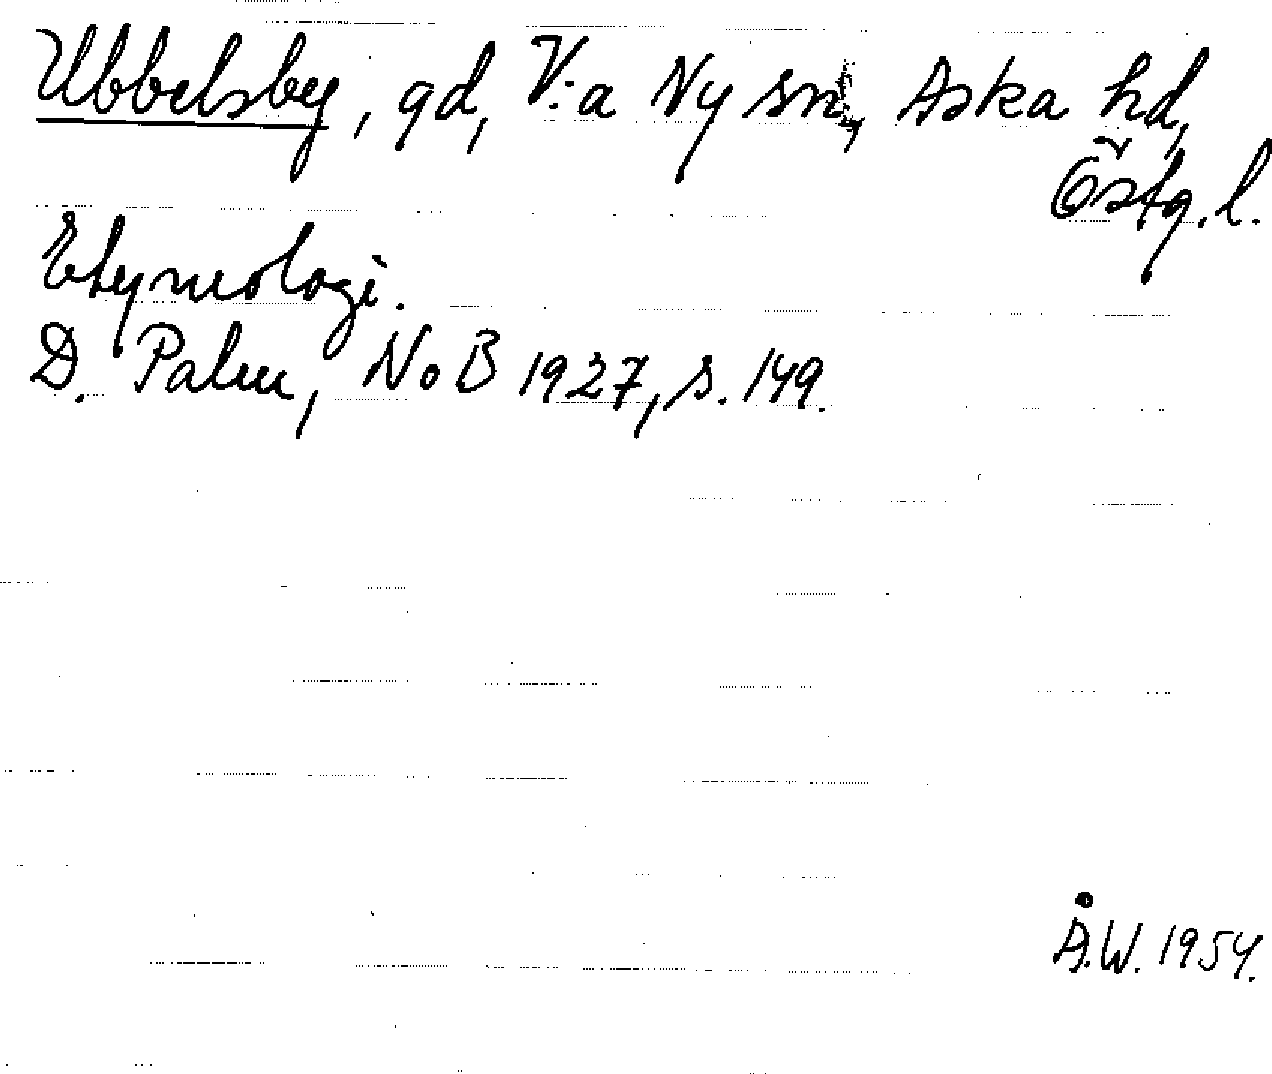 Ubbelsby, gd, V:a Ny sn, Aska hd,
Östg. l.
Etymologi.
D. Palm, NoB 1927, s. 149.
Å.W. 1954.